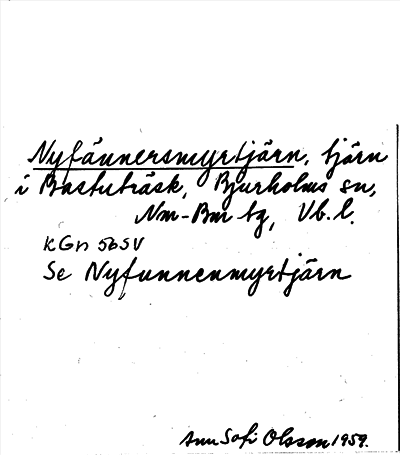 Nyfånnersmyrtjärn, tjärn
i Bastuträsk, Bjurholms sn,
Nm-Bm tg, Vb. l.
KGn 56SV
Se Nyfunnenmyrtjärn
Ann Sofi Olsson 1959.